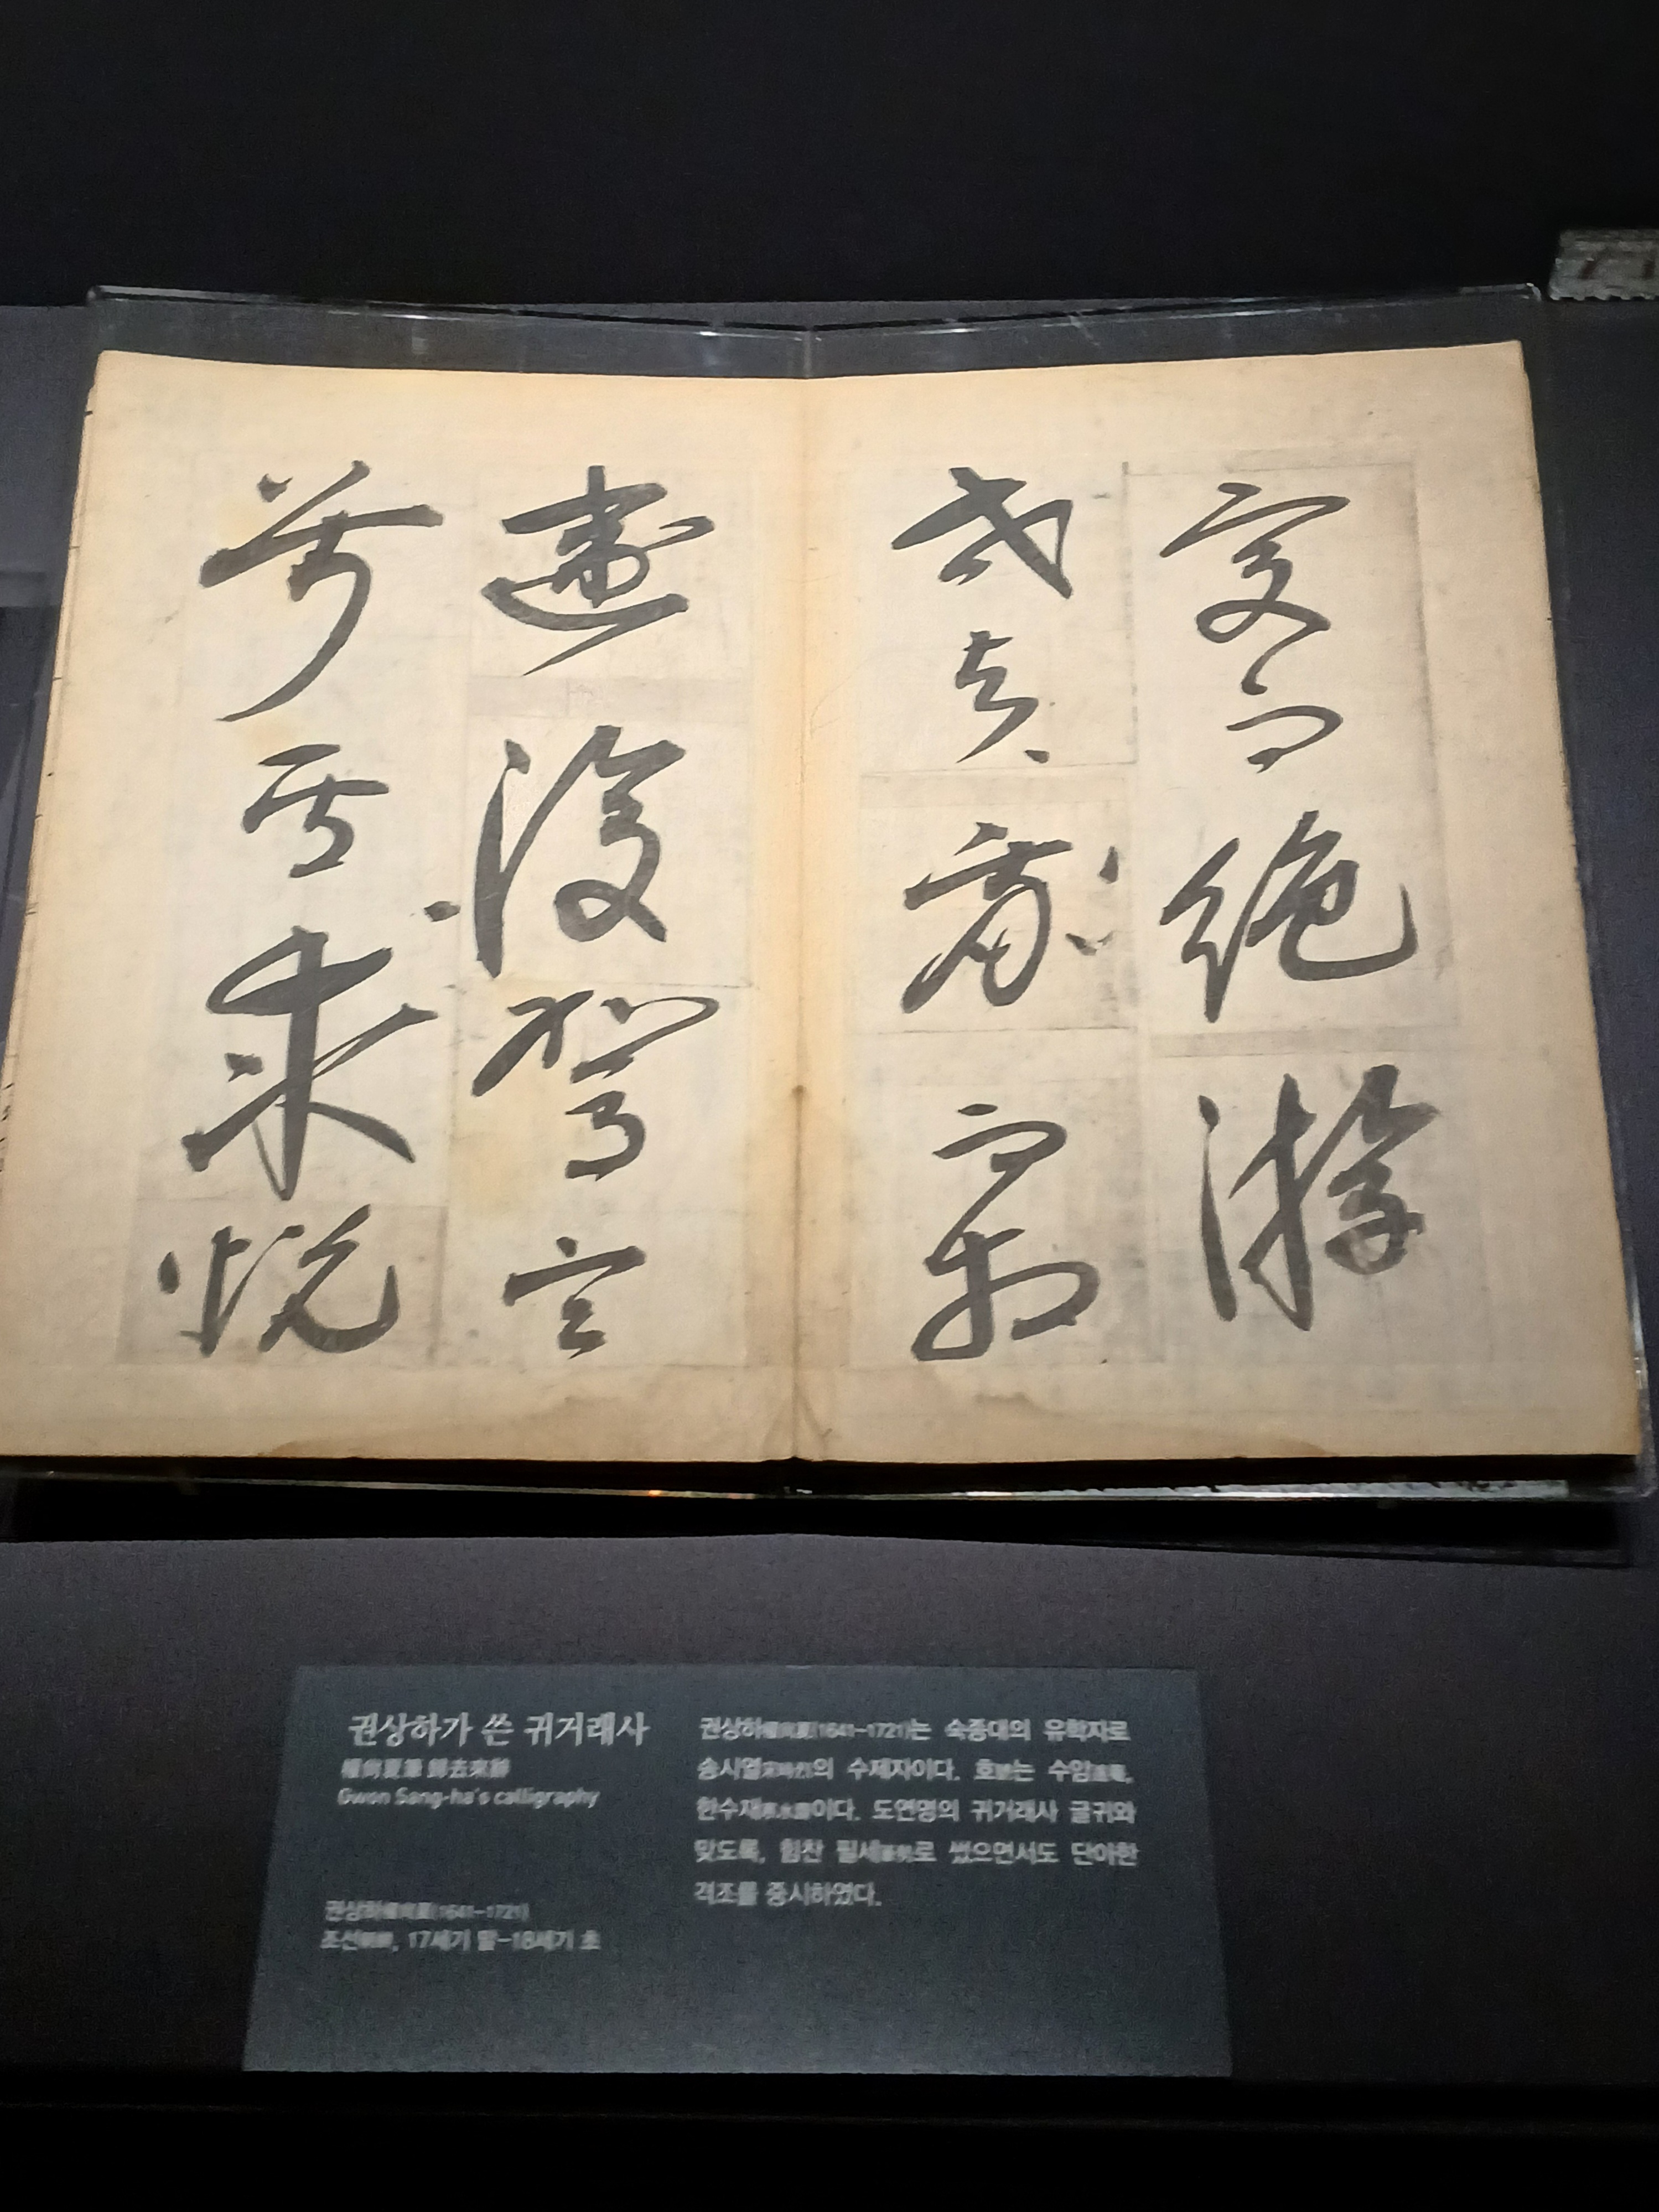 交而絶游
世与我而相
遺復駕言
兮焉求悅
권상하가 쓴 귀거래사
權尙夏筆 歸去來辭
Gwon Sang-ha's calligraphy
권상하權尙夏(1641-1721)
조선朝鮮, 17세기 말-18세기 초
권상하權尙夏(1641-1721)는 숙종대의 유학자로
송시열宋時烈의 수제자이다. 호號는 수암遂菴,
한수재寒水齋이다. 도연명의 귀거래사 글귀와
맞도록, 힘찬 필세筆勢로 썼으면서도 단아한
격조를 중시하였다.